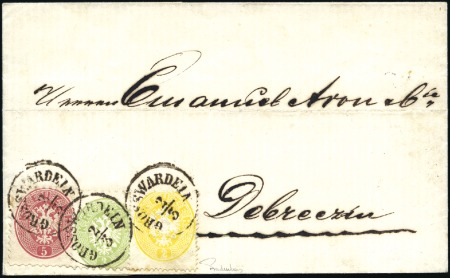 Herren Emanuel Aron & Cie
Debreczin
GROSSWARDEIN
GROSSWARDEIN
GROSSWARDEIN
5